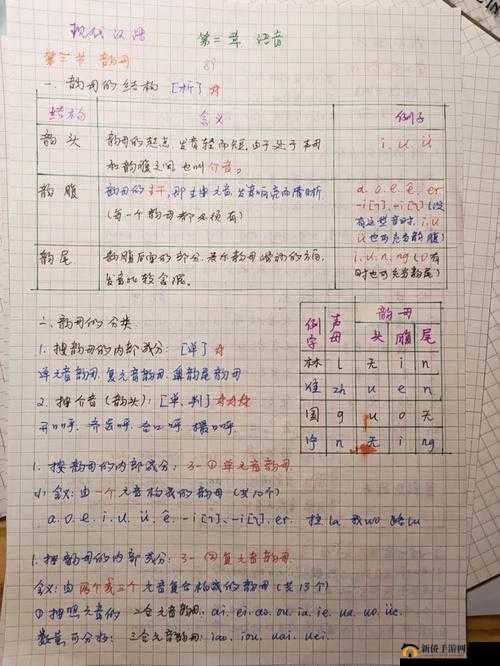 现代汉语 第二章 语音
第三节 韵母 89
一. 韵母的结构 [析] ☆
结构 含义 例子
韵头 韵母的起点, 发音轻而短, 由于处于声母和韵腹之间, 也叫介音。 i. u. ü
韵腹 韵母的主干, 即主要元音, 发音响亮而清晰
(每一个韵母都必须有)
a. o. e. ê. er
-i[ɿ]. -i[ʅ] (没
有这些音时, i. u
ü 也可充当韵腹)
韵尾 韵腹后面的部分, 表示韵母滑动的方向,
发音比较含混。
i. u. n. ng (o有
时也可充当韵尾)
二. 韵母的分类
1. 按韵母的内部成分: [单] ☆
单元音韵母. 复元音韵母. 鼻韵尾韵母
2. 按介音 (韵头): [单. 判] ☆☆☆
开口呼. 齐齿呼. 合口呼. 撮口呼.
例字 声母 韵母
头 腹 尾
林 l 无 i n
准 zh u e n
国 g u o 无
宁 n 无 i ng
1. 按韵母的内部成分: 3-① 单元音韵母.
(1) 含义: 由一个元音构成的韵母 (共10个)
a. o. e. i. u. ü. ê. -i[ɿ]. -i[ʅ]. er. 拉la 我wo 路lu
1. 按韵母的内部成分: 3-② 复元音韵母.
含义: 由两个或三个元音复合构成的韵母 (共13个)
① 按照元音的 二合元音韵母: ai. ei. ao. ou. ia. ie. ua. uo. üe.
数量可分为: 三合元音韵母: iao. iou. uai. uei.
新侨手游网